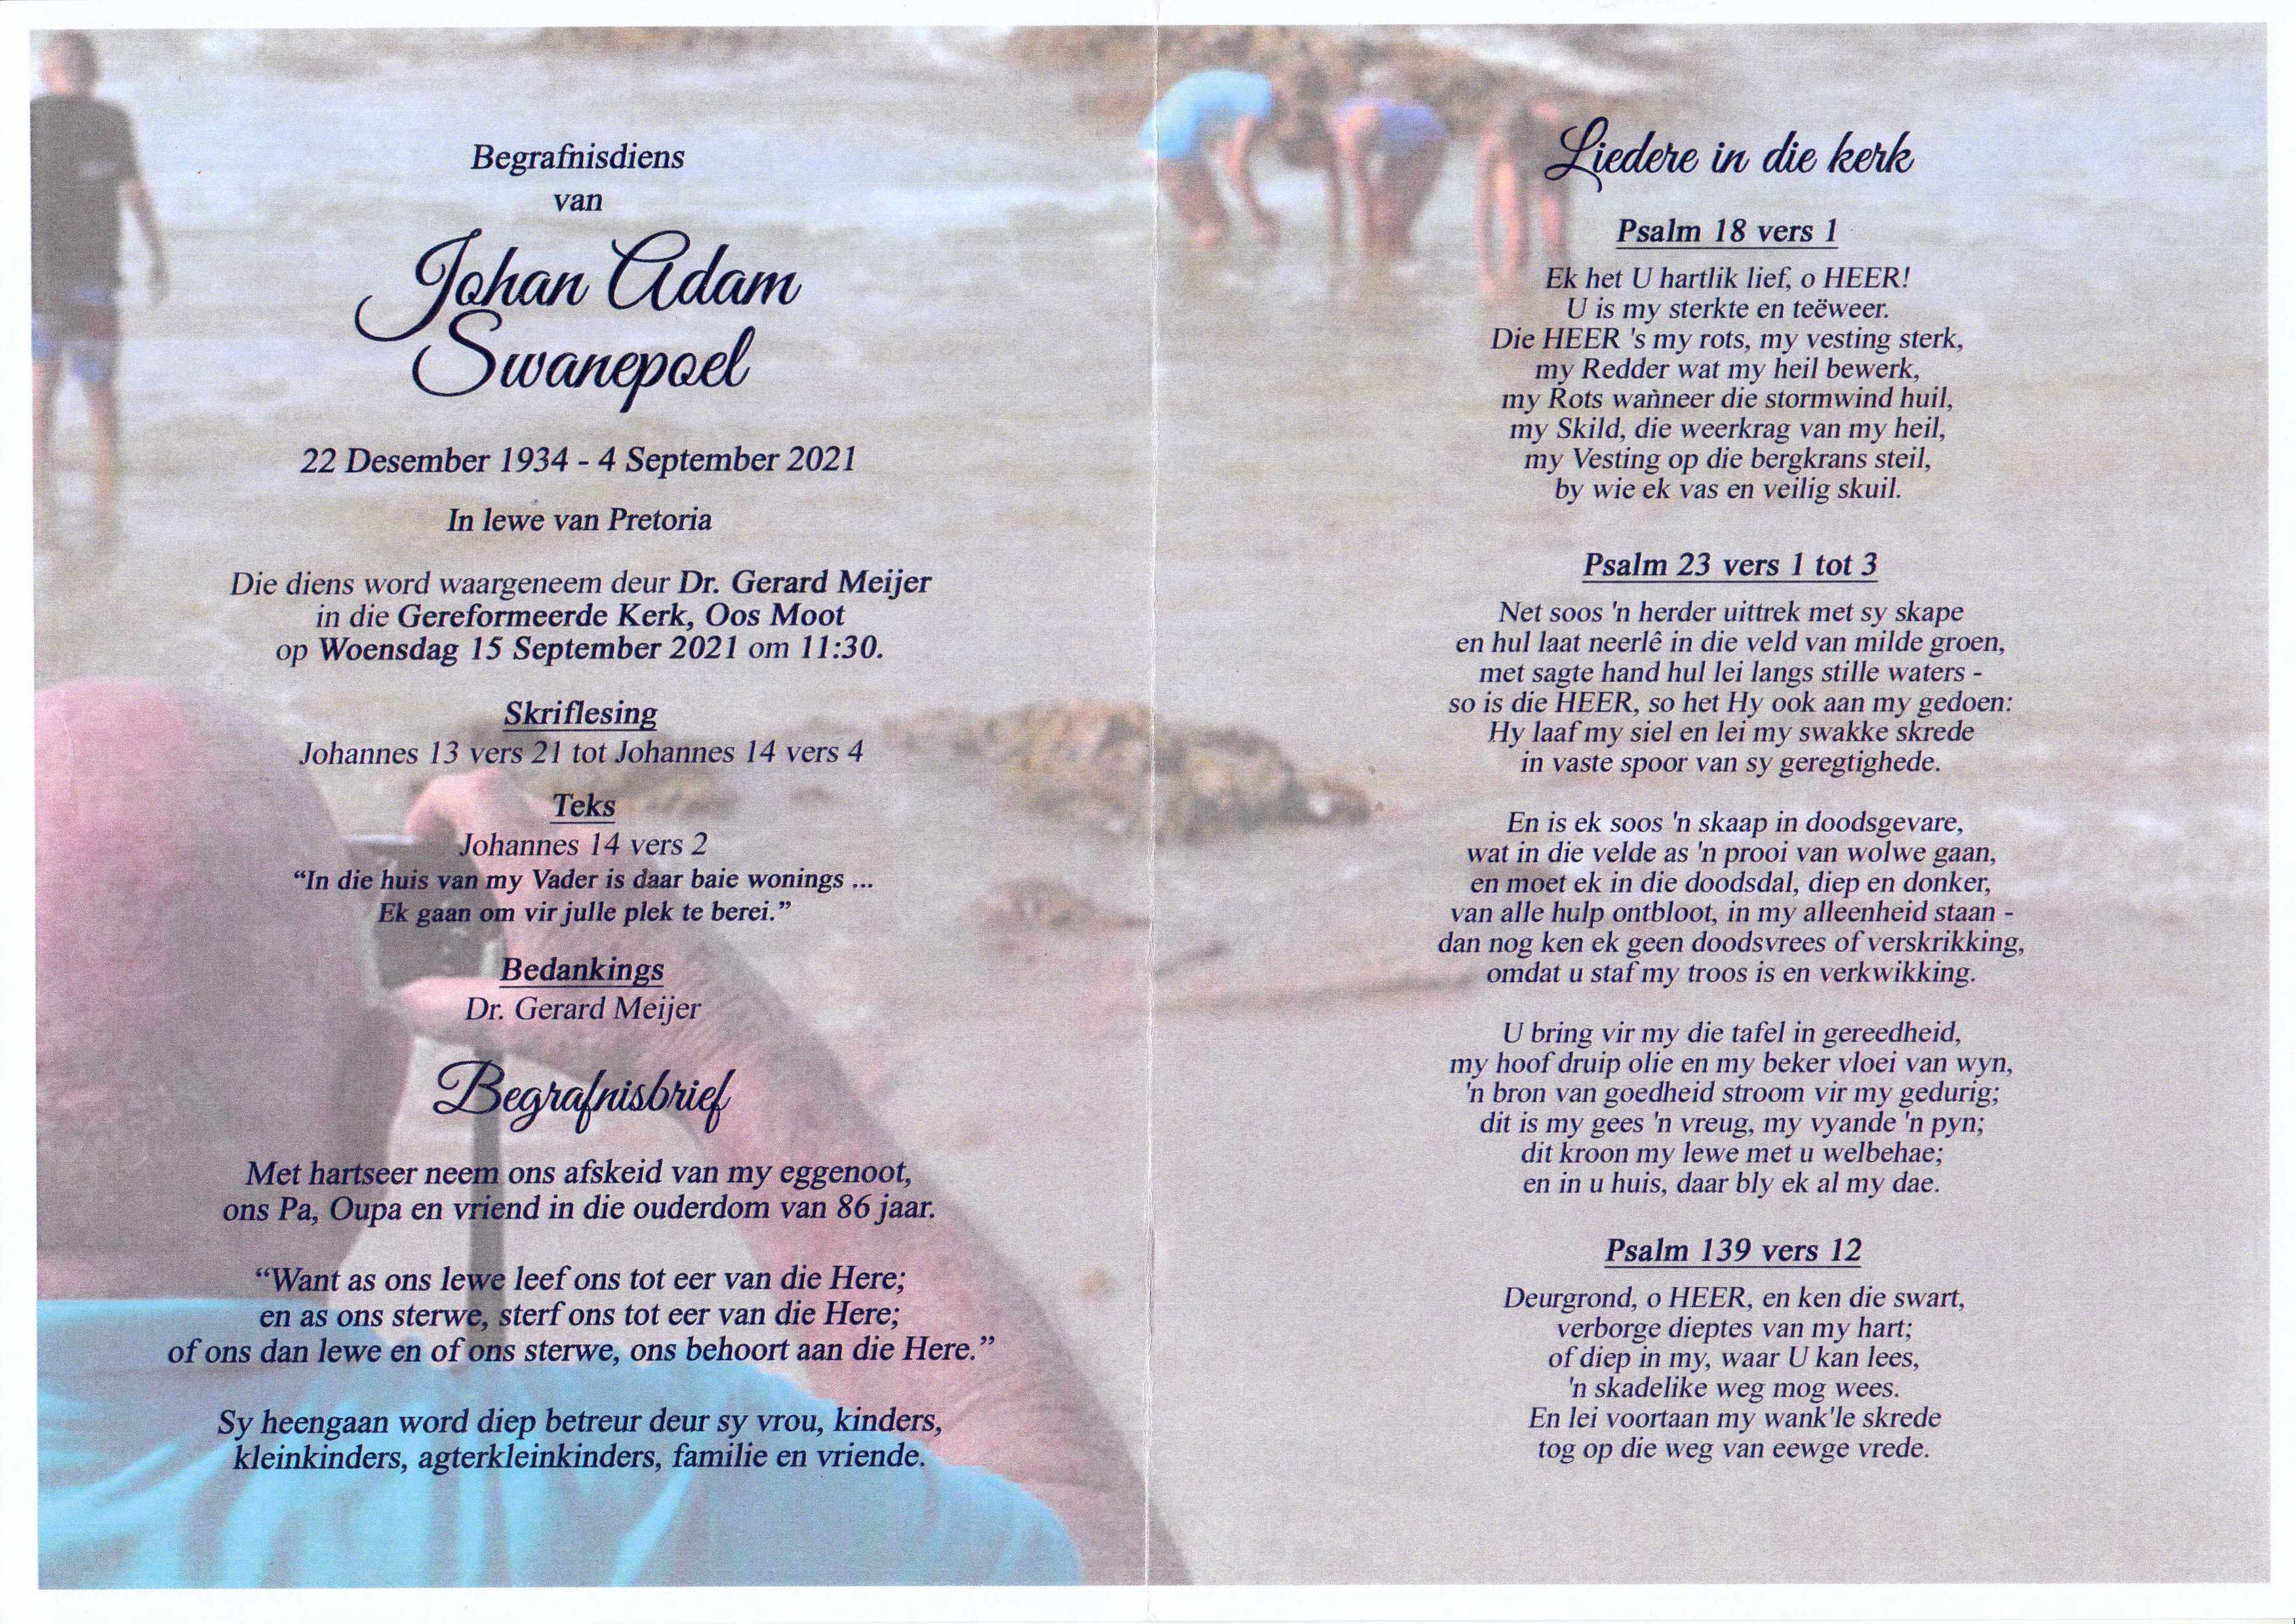 Begrafnisdiens
van
Johan Adam
Swanepoel
22 Desember 1934 - 4 September 2021
In lewe van Pretoria
Die diens word waargeneem deur Dr. Gerard Meijer
in die Gereformeerde Kerk, Oos Moot
op Woensdag 15 September 2021 om 11:30.
Skriflesing
Johannes 13 vers 21 tot Johannes 14 vers 4
Teks
Johannes 14 vers 2
“In die huis van my Vader is daar baie wonings ...
Ek gaan om vir julle plek te berei.”
Bedankings
Dr. Gerard Meijer
Begrafnisbrief
Met hartseer neem ons afskeid van my eggenoot,
ons Pa, Oupa en vriend in die ouderdom van 86 jaar.
“Want as ons lewe leef ons tot eer van die Here;
en as ons sterwe, sterf ons tot eer van die Here;
of ons dan lewe en of ons sterwe, ons behoort aan die Here.”
Sy heengaan word diep betreur deur sy vrou, kinders,
kleinkinders, agterkleinkinders, familie en vriende.
Liedere in die kerk
Psalm 18 vers 1
Ek het U hartlik lief, o HEER!
U is my sterkte en teëweer.
Die HEER 's my rots, my vesting sterk,
my Redder wat my heil bewerk,
my Rots wanneer die stormwind huil,
my Skild, die weerkrag van my heil,
my Vesting op die bergkrans steil,
by wie ek vas en veilig skuil.
Psalm 23 vers 1 tot 3
Net soos 'n herder uittrek met sy skape
en hul laat neerlê in die veld van milde groen,
met sagte hand hul lei langs stille waters -
so is die HEER, so het Hy ook aan my gedoen:
Hy laaf my siel en lei my swakke skrede
in vaste spoor van sy geregtighede.
En is ek soos 'n skaap in doodsgevare,
wat in die velde as 'n prooi van wolwe gaan,
en moet ek in die doodsdal, diep en donker,
van alle hulp ontbloot, in my alleenheid staan -
dan nog ken ek geen doodsvrees of verskrikking,
omdat u staf my troos is en verkwikking.
U bring vir my die tafel in gereedheid,
my hoof druip olie en my beker vloei van wyn,
'n bron van goedheid stroom vir my gedurig;
dit is my gees 'n vreug, my vyande 'n pyn;
dit kroon my lewe met u welbehae;
en in u huis, daar bly ek al my dae.
Psalm 139 vers 12
Deurgrond, o HEER, en ken die swart,
verborge dieptes van my hart;
of diep in my, waar U kan lees,
'n skadelike weg mog wees.
En lei voortaan my wank'le skrede
tog op die weg van eewge vrede.